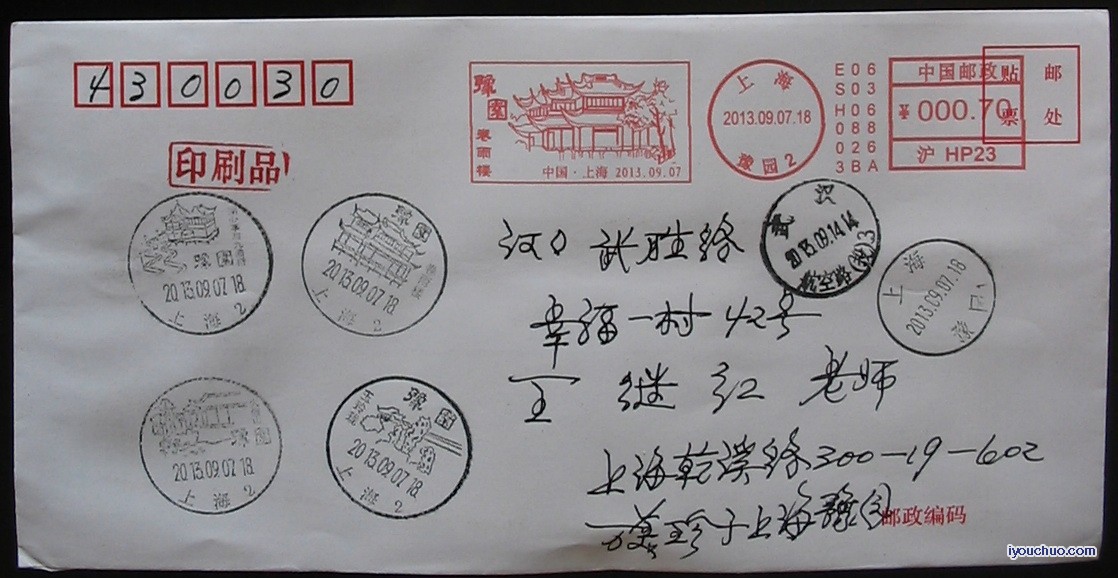 430030
豫园
卷雨楼
中国·上海 2013.09.07
上海
2013.09.07.18
豫园2
E06
S03
H06
088
026
3BA
中国邮政
¥000.70
沪 HP23
贴邮
票处
印刷品
豫园
2013.09.07.18
上海2
豫园
2013.09.07.18
上海2
武汉
2013.09.14.14
航空路(投)3
上海
2013.09.07.18
豫园
汉口 武胜路
幸福一村42号
王继红 老师
豫园
2013.09.07.18
上海2
豫园
玉玲珑
2013.09.07.18
上海2
上海乾溪路300-19-602
于上海豫园
邮政编码
iyouchuo.com